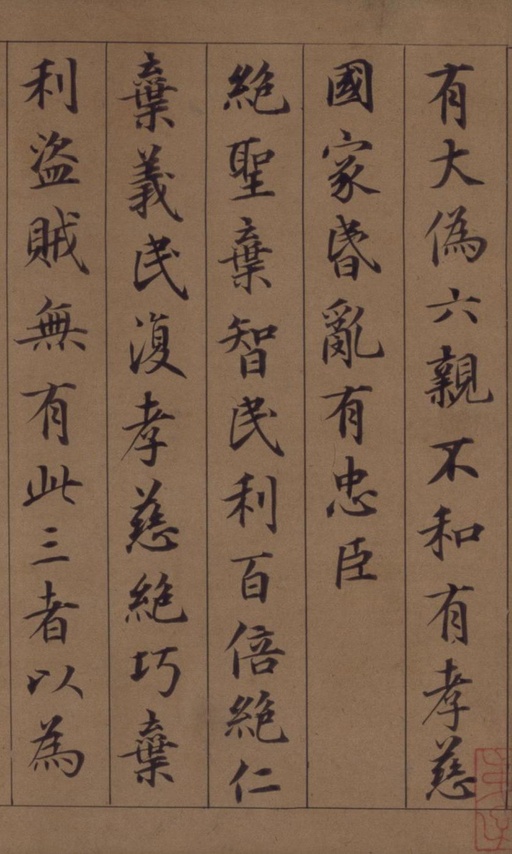 有大偽六親不和有孝慈
國家昏亂有忠臣
絕聖棄智民利百倍絕仁
棄義民復孝慈絕巧棄
利盜賊無有此三者以為